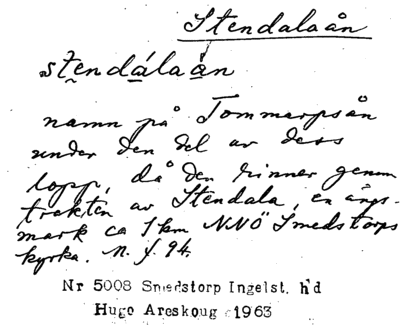 Stendalaån
stendálaàn
namn på Tommarpsån
under den del av dess
lopp, då den rinner genom
trakten av Stendala, en ängs-
mark ca 1 km NNÖ Smedstorps
kyrka. n. f. 94.
Nr 5008 Smedstorp Ingelst. h'd
Hugo Areskoug 1963